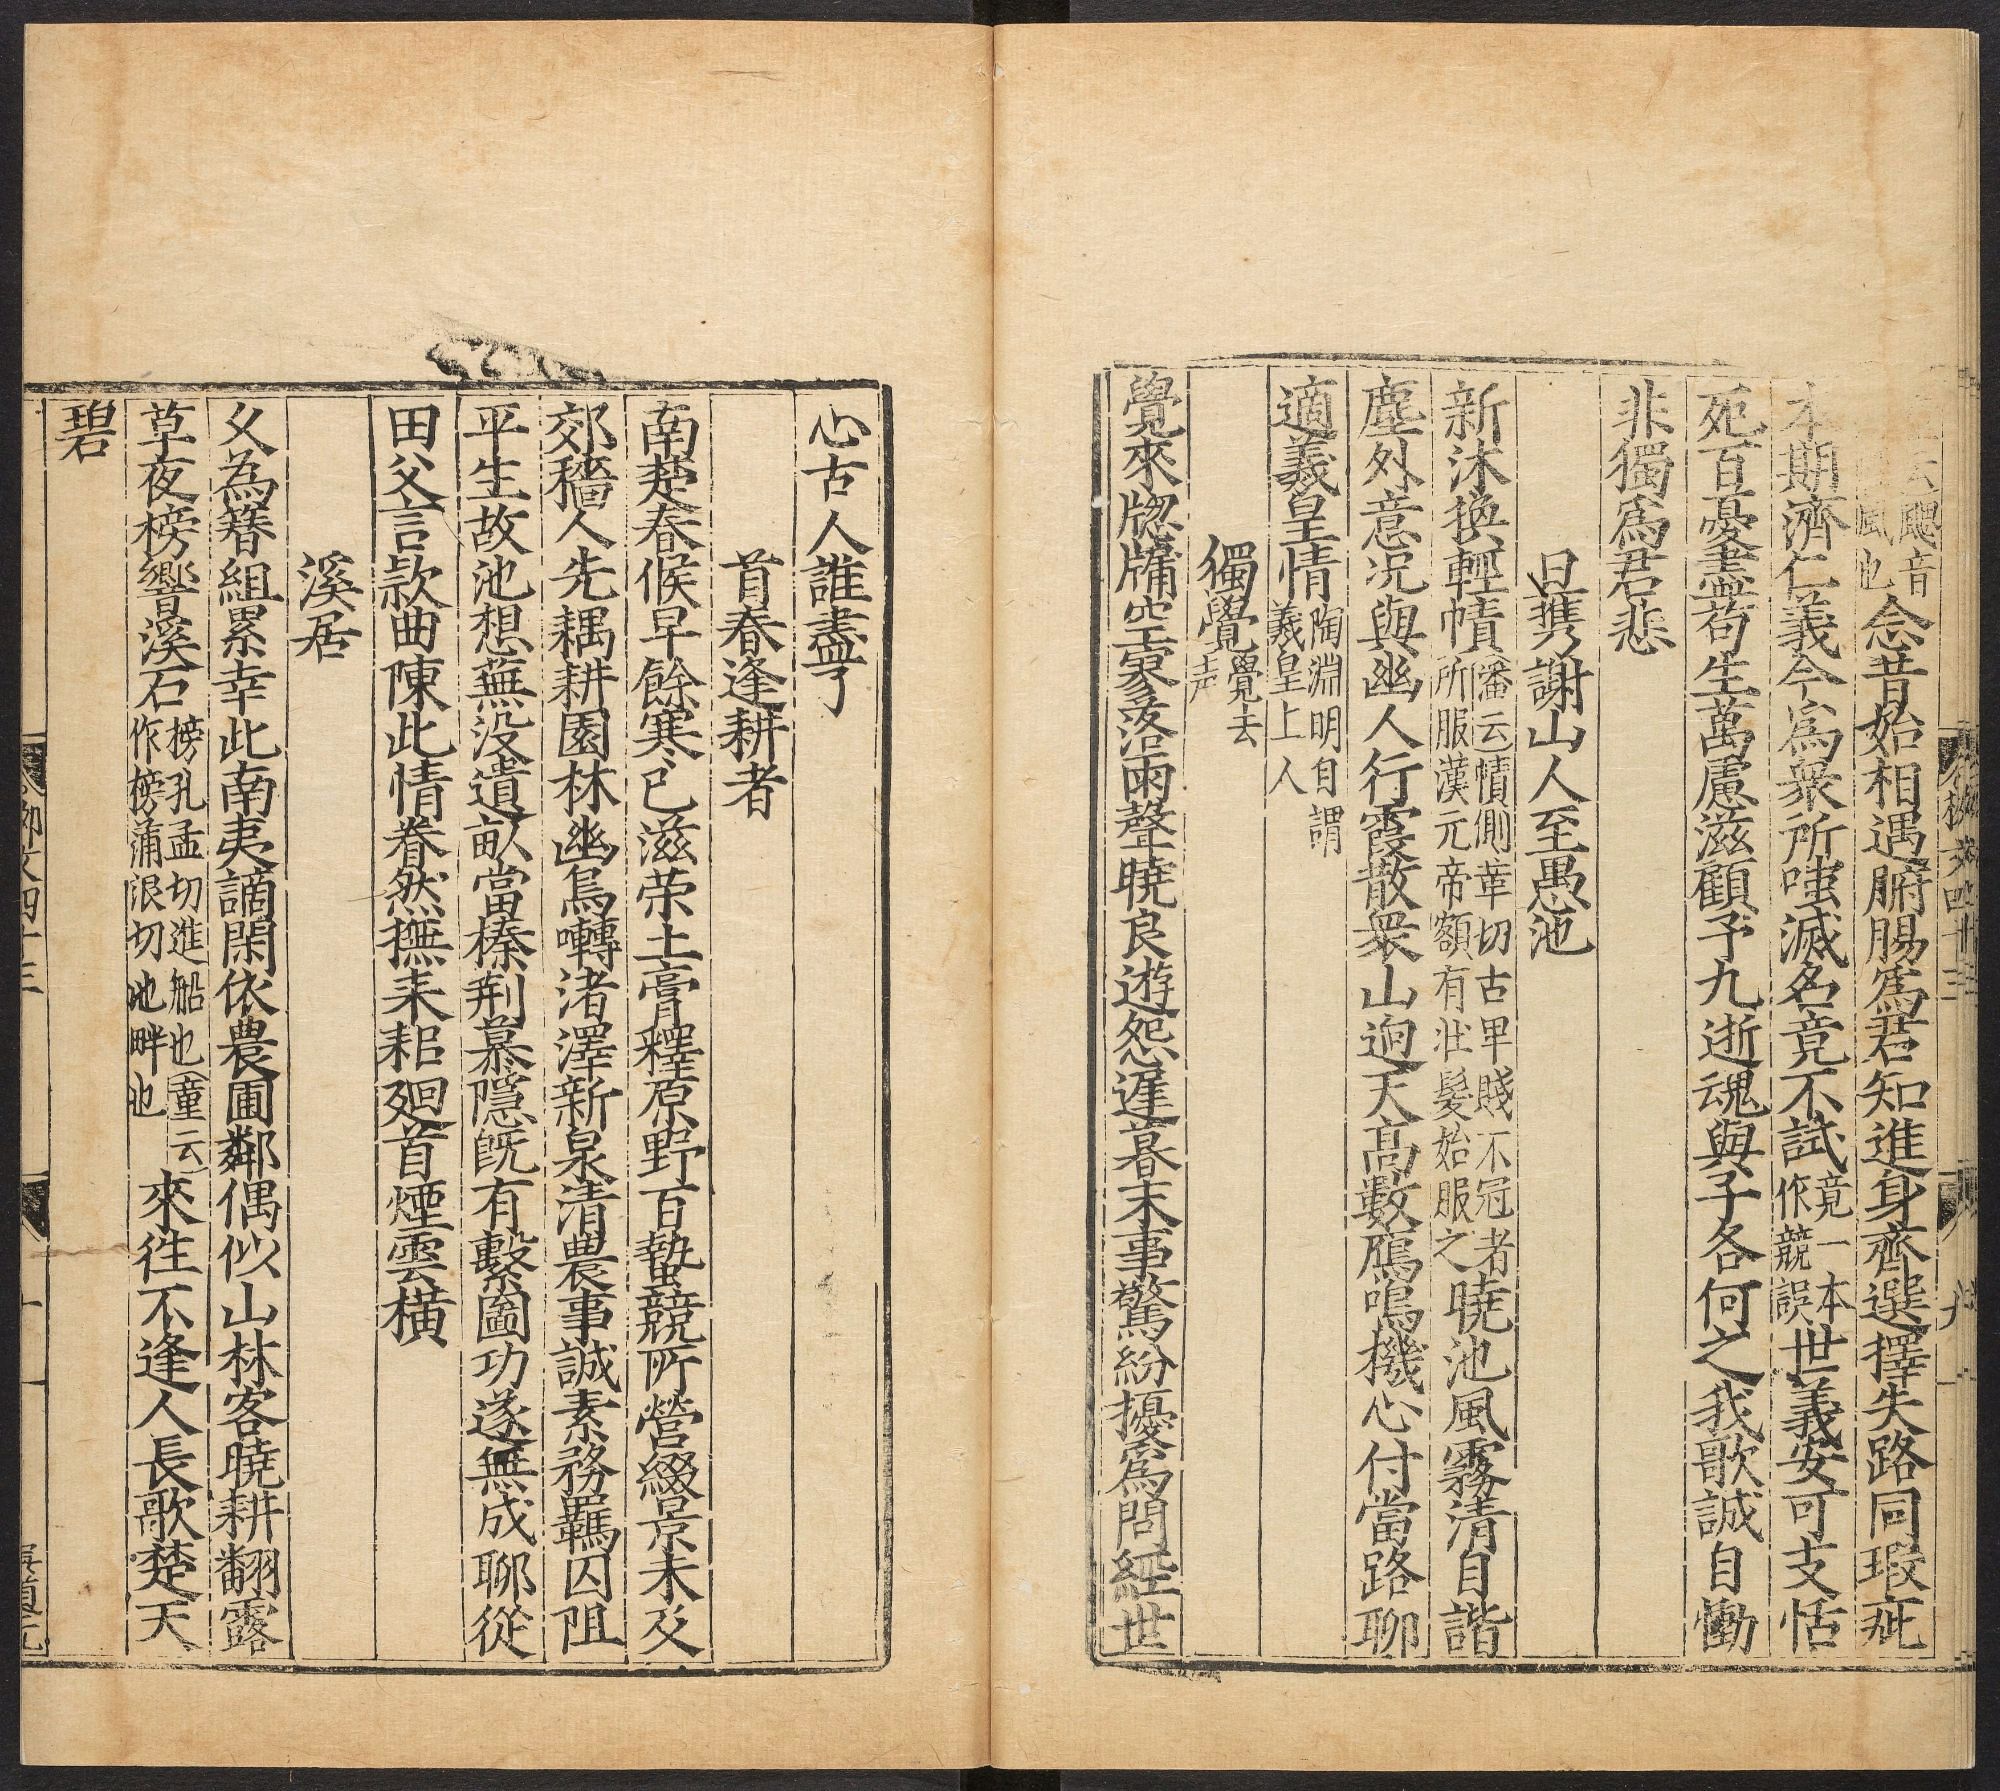 云颸音
風也念昔始相遇腑腸爲君知進身齊選擇失路同瑕疵
本期濟仁義今爲衆所嗤滅名竟不試竟一本作競誤世義安可支恬
死百憂盡苟生萬慮滋顧予九逝魂與子各何之我歌誠自慟
非獨爲君悲
旦携謝山人至愚池
新沐換輕幘潘云幘側革切古卑賤不冠者所服漢元帝額有壯髮始服之曉池風霧清自諧
塵外意况與幽人行霞散衆山迥天高數鴈鳴機心付當路聊
適羲皇情陶淵明自謂羲皇上人
獨覺覺去声
覺來牎牖空寥落雨聲曉良遊怨遲暮末事驚紛擾爲問經世
心古人誰盡了
首春逢耕者
南楚春候早餘寒已滋荣土膏釋原野百蟄競所營綴景未及
郊穡人先耦耕園林幽鳥囀渚澤新泉清農事誠素務羈囚阻
平生故池想蕪没遺畝當榛荆慕隱既有繫圖功遂無成聊從
田父言款曲陳此情眷然撫耒耜廻首煙雲橫
溪居
久為簪組累幸此南夷謫閑依農圃鄰偶似山林客曉耕翻露
草夜榜響溪石榜孔孟切進船也童云作榜蒲浪切地畔也來徃不逢人長歌楚天
碧